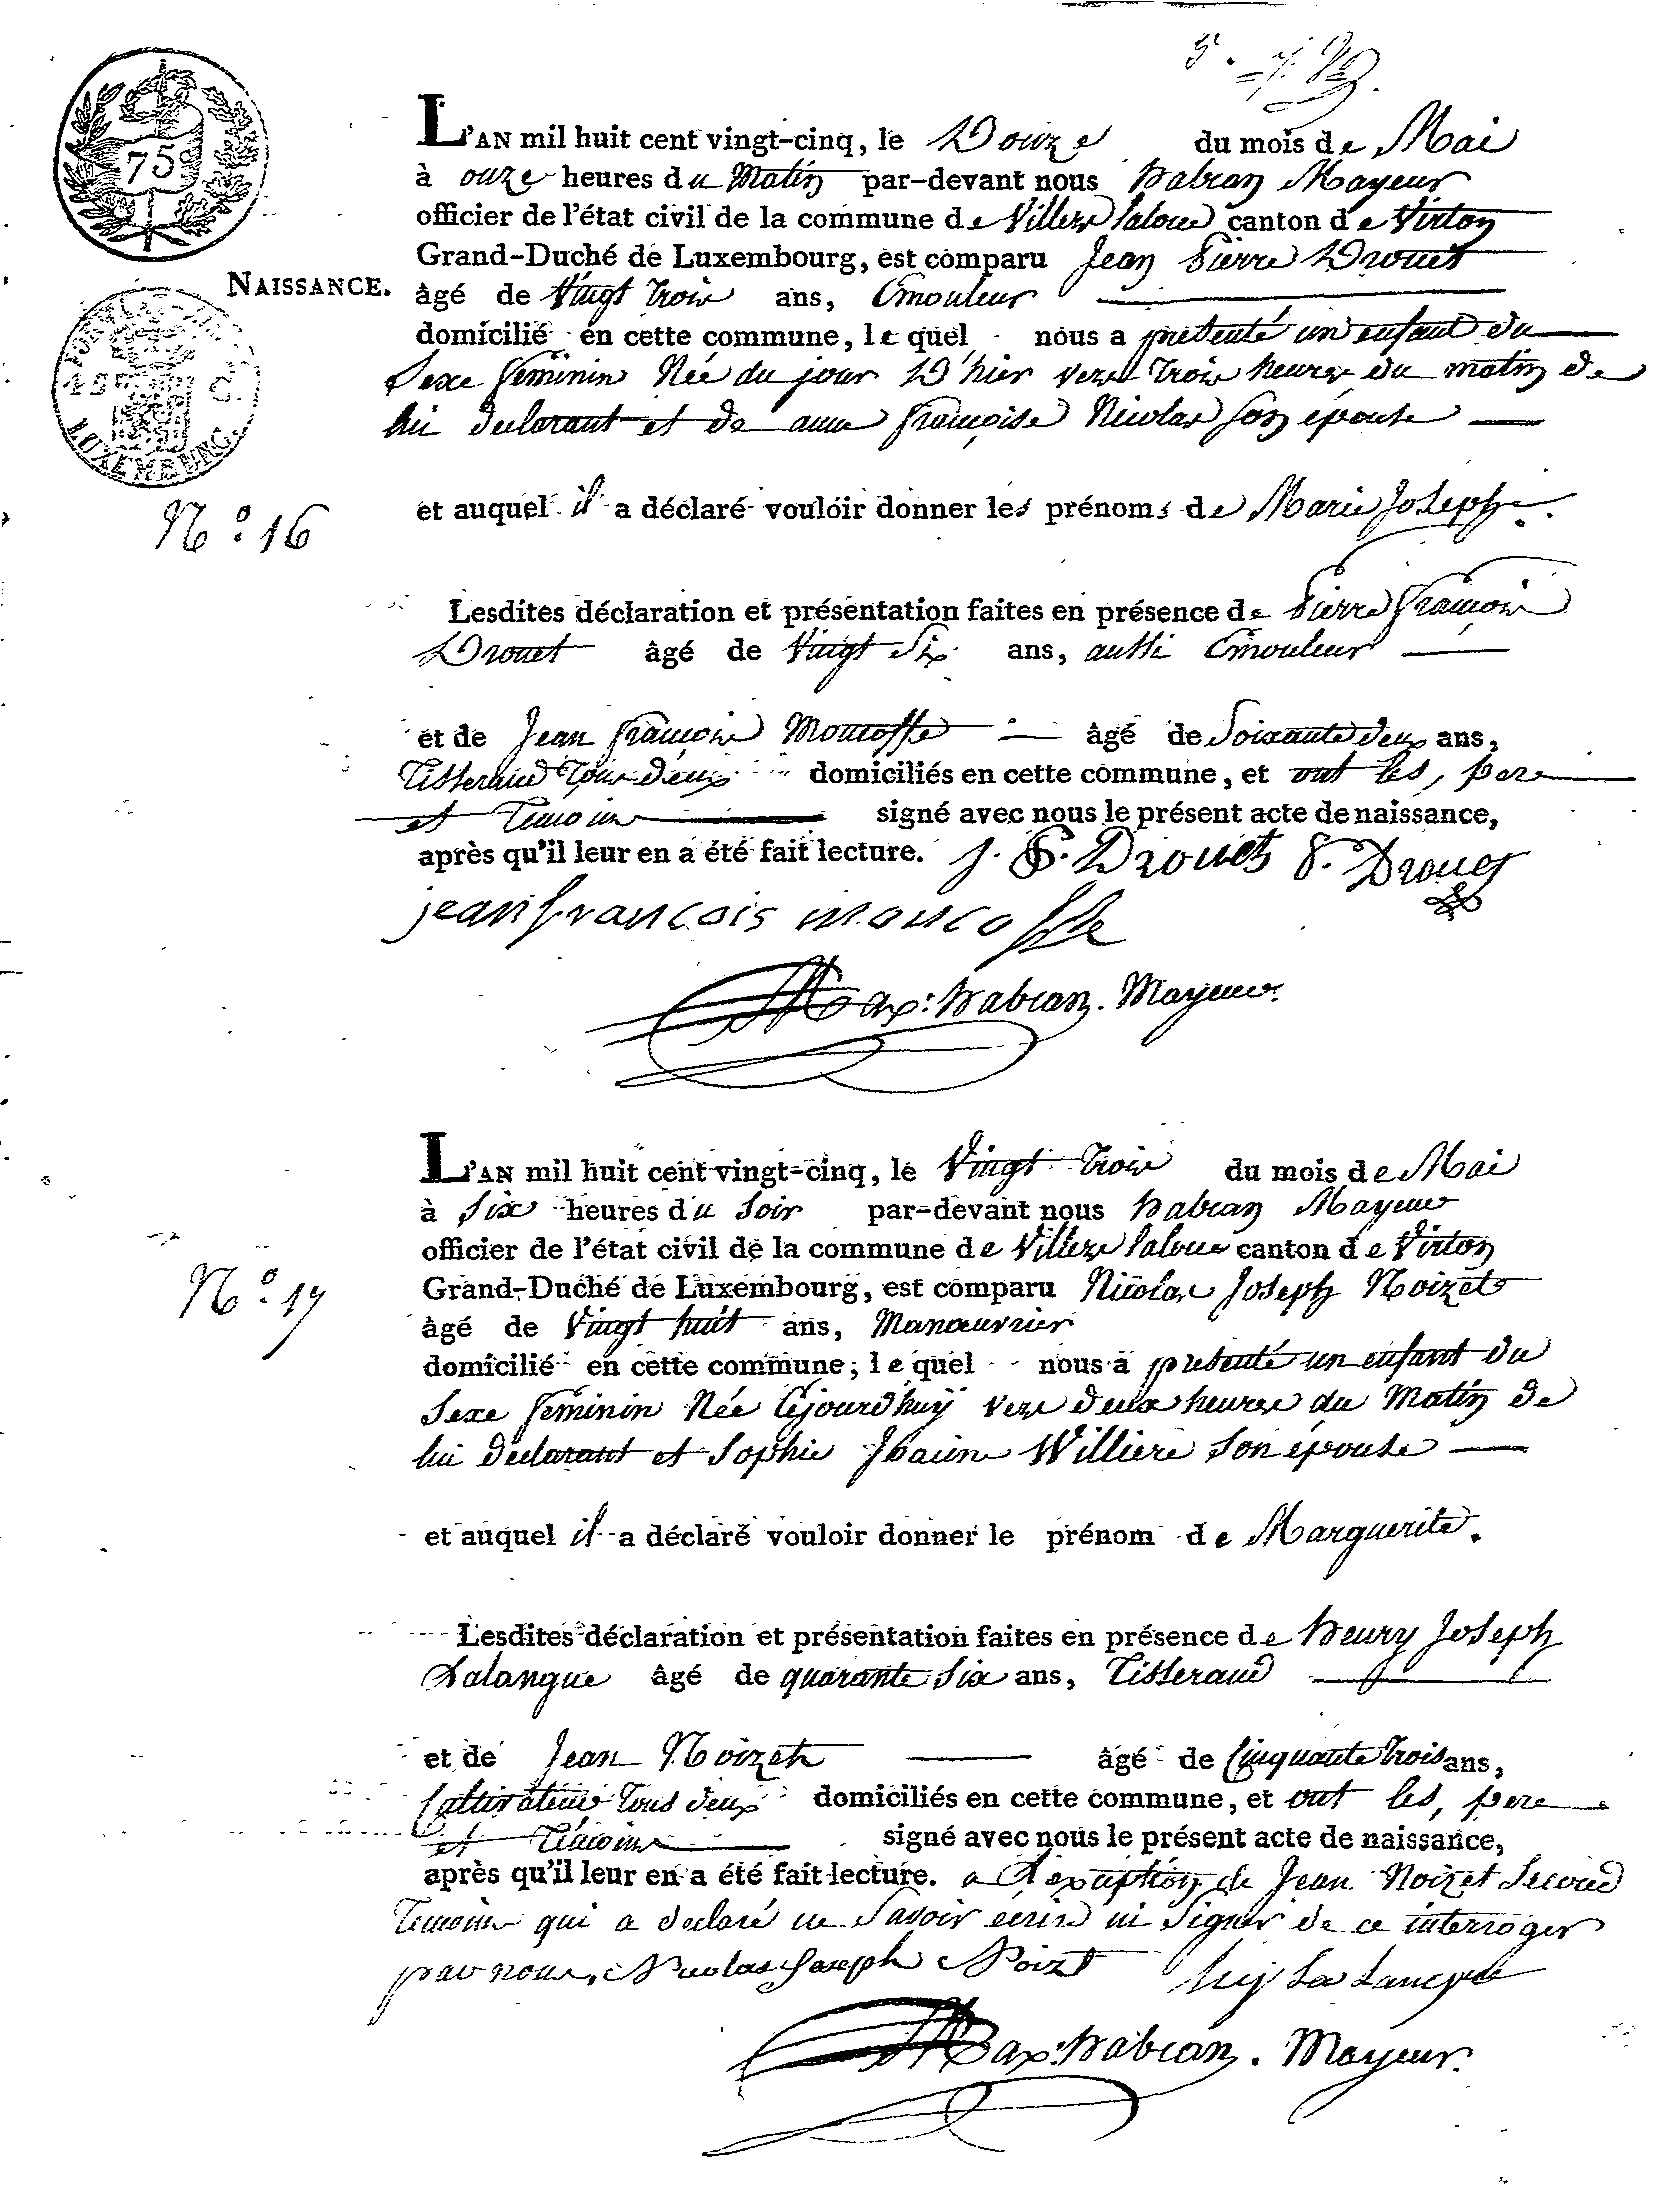 75
L'AN mil huit cent vingt-cinq, le Douze du mois de Mai
à onze heures du Matin par-devant nous habran Mayeur
officier de l'état civil de la commune de Villers laloue canton de Virton
Grand-Duché de Luxembourg, est comparu Jean Pierre Drouet
NAISSANCE.
âgé de Vingt trois ans, Emouleur
domicilié en cette commune, lequel nous a présenté un enfant du
Sexe féminin Née du jour D'hier vers trois heures du matin de
lui declarant et de anne françoise Nicolas son épouse
LUXEMBURG.
N.o 16
et auquel il a déclaré vouloir donner les prénoms de Marie Josephe.
Lesdites déclaration et présentation faites en présence de Pierre François
Drouet âgé de Vingt Six ans, aussi Emouleur
et de Jean françois Moucosse âgé de Soixante deux ans,
Tisserand tous deux domiciliés en cette commune, et ont les, pere
et temoins signé avec nous le présent acte de naissance,
après qu'il leur en a été fait lecture. J. P. Drouet P. Drouet
jean francois moucosse
Max: habran. Mayeur.
L'AN mil huit cent vingt-cinq, le Vingt trois du mois de Mai
à Six heures du Soir par-devant nous habran Mayeur
officier de l'état civil de la commune de Villers laloue canton de Virton
N.o 17
Grand-Duché de Luxembourg, est comparu Nicolas Joseph Noizet
âgé de Vingt huit ans, Manœuvrier
domicilié en cette commune, lequel nous a présenté un enfant du
Sexe féminin Née Cejourd'huy vers deux heures du Matin de
lui declarant et Sophie Williere son épouse
et auquel il a déclaré vouloir donner le prénom de Marguerite.
Lesdites déclaration et présentation faites en présence de henry Joseph
Lalangue âgé de quarante Six ans, Tisserand
et de Jean Noizet âgé de Cinquante trois ans,
Cultivateur tous deux domiciliés en cette commune, et ont les, pere
et temoins signé avec nous le présent acte de naissance,
après qu'il leur en a été fait lecture. a l'exception de Jean Noizet Second
temoin qui a declaré ne Savoir ecrire ni Signer de ce interroger
par nous, Nicolas Joseph Noizet La Langue
Max: habran. Mayeur.